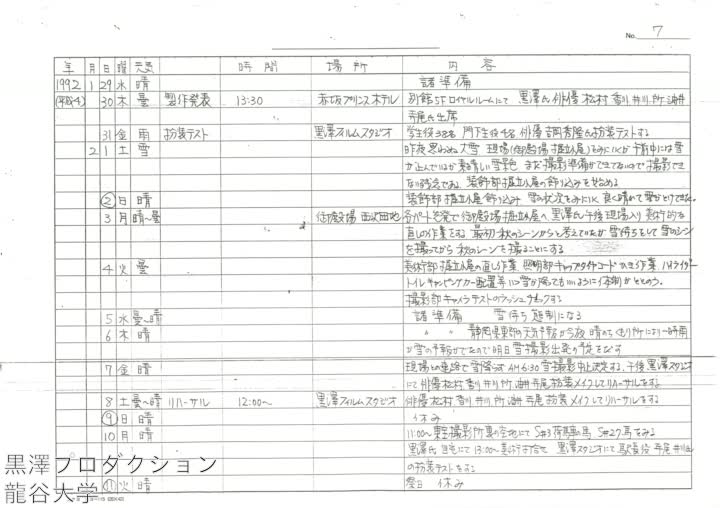 No. 7
年 月 日 曜 天気 時間 場所 内容
1992 1 29 水 晴 諸準備
(平成4) 30 木 曇 製作発表 13:30 赤坂プリンスホテル 別館5Fロイヤルルームにて 黒澤氏 俳優 松村 香川 井川 所 油井
寺尾氏出席
31 金 雨 扮装テスト 黒澤フィルムスタジオ 学生役38名 門下生役4名 俳優 扮装テストする
2 1 土 雪 昨夜 大雪 現場(御殿場 掘立小屋)をみにいくが 午前中には雪
が止んでいるが 素晴しい雪景色 まだ撮影準備ができてないので撮影でき
ない 残念である 装飾部 掘立小屋の飾り込みを始める
② 日 晴 装飾部 掘立小屋飾り込み 雪の状況をみにいく 良く晴れて雪がとけてきた
3 月 晴〜曇 御殿場 各パート先発で御殿場掘立小屋へ 黒澤氏午後現場入り 美術的な
直しの作業をする 最初 秋のシーンからと考えていたが 雪待ちをして雪のシーン
を撮ってから 秋のシーンを撮ることにする
4 火 曇 美術部 掘立小屋の直し作業 照明部 キャップタイヤコード 作業 ハイライダー
トイレ キャンピングカー配置等 いつ雪が降ってもいいように体制がととのう。
撮影部 キャメラテストのラッシュチェックする
5 水 曇〜晴 諸準備 雪待ち態制になる
6 木 晴 〃 〃 静岡県東部の天気予報が今夜 晴のちくもり所により一時雨
か雪の予報がでたので 明日雪撮影出発の予定をなす
7 金 晴 現場との連絡で雪降らず AM6:30 雪撮影中止決定する。午後 黒澤スタジオ
にて 俳優 松村 香川 井川 所 油井 寺尾 扮装メイクしてリハーサルをする
8 土 曇〜晴 リハーサル 12:00〜 黒澤フィルムスタジオ 俳優 松村 香川 井川 所 油井 寺尾 扮装メイクしてリハーサルをする
⑨ 日 晴 休み
10 月 晴 11:00〜 東宝撮影所裏の空地にて S#3 荷馬車馬 S#27 馬をみる
黒澤氏 自宅にて 13:00〜 美術打合せ 黒澤スタジオにて 寺尾 井川
の扮装テストをする
⑪ 火 晴 祭日 休み
黒澤プロダクション
龍谷大学